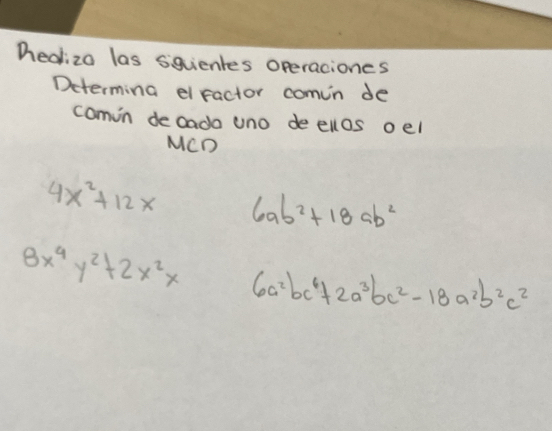 Realiza las siguientes operaciones
Determina el factor común de
común de cada uno de ellas o el
MCD
4x²+12x
6ab²+18ab²
8x⁴y²+2x²x
6a²bc⁴+2a³bc²-18a²b²c²